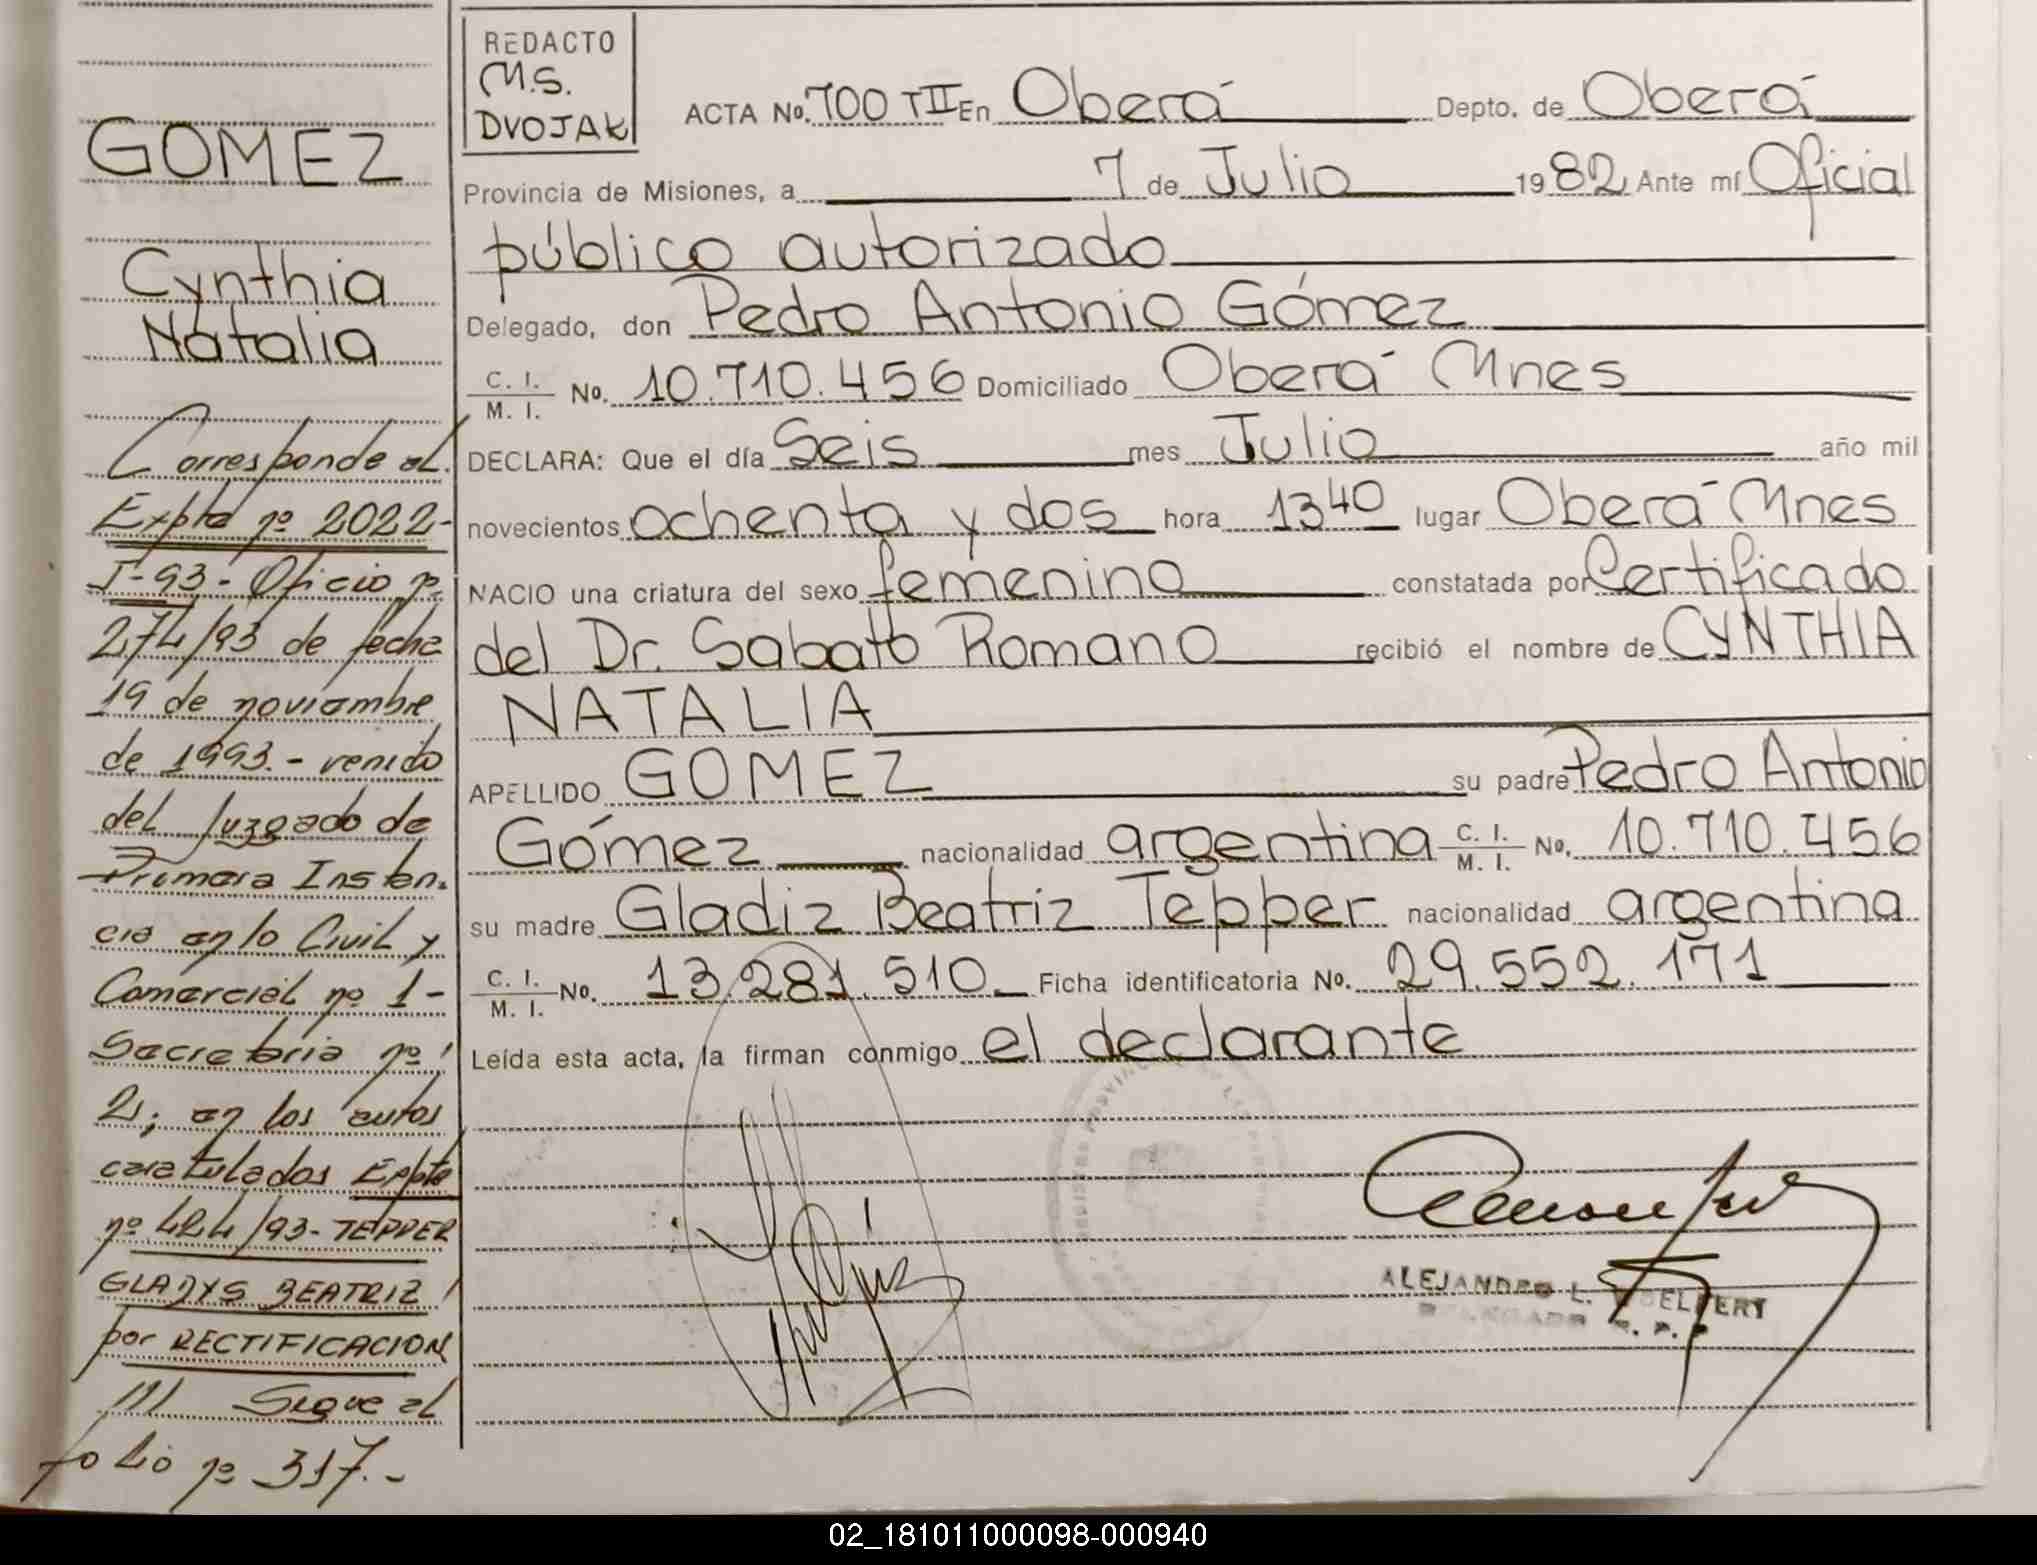 GOMEZ
Cynthia
Natalia
Corresponde al
Expte nº 2022-
I-93- Oficio nº
274/93 de fecha
19 de noviembre
de 1993.- venido
del Juzgado de
Primera Instan-
cia en lo Civil y
Comercial nº 1-
Secretaria nº
2; en los autos
caratulados Expte
nº 424/93- TEPPER
GLADYS BEATRIZ
por RECTIFICACION
/// Sigue al
folio nº 317.-
REDACTO
M.S.
DVOJAK
ACTA No. 700 TII En Oberá Depto. de Oberá
Provincia de Misiones, a 7 de Julio 1982 Ante mí Oficial
público autorizado
Delegado, don Pedro Antonio Gómez
C. I. / M. I. No. 10.710.456 Domiciliado Oberá Mnes
DECLARA: Que el día Seis mes Julio año mil
novecientos ochenta y dos hora 13 40 lugar Oberá Mnes
NACIO una criatura del sexo femenino constatada por Certificado
del Dr. Sabato Romano recibió el nombre de CYNTHIA
NATALIA
APELLIDO GOMEZ su padre Pedro Antonio
Gómez nacionalidad argentina C. I. / M. I. No. 10.710.456
su madre Gladiz Beatriz Tepper nacionalidad argentina
C. I. / M. I. No. 13.281.510 Ficha identificatoria No. 29.552.171
Leída esta acta, la firman conmigo el declarante
ALEJANDRO L.
02_181011000098-000940